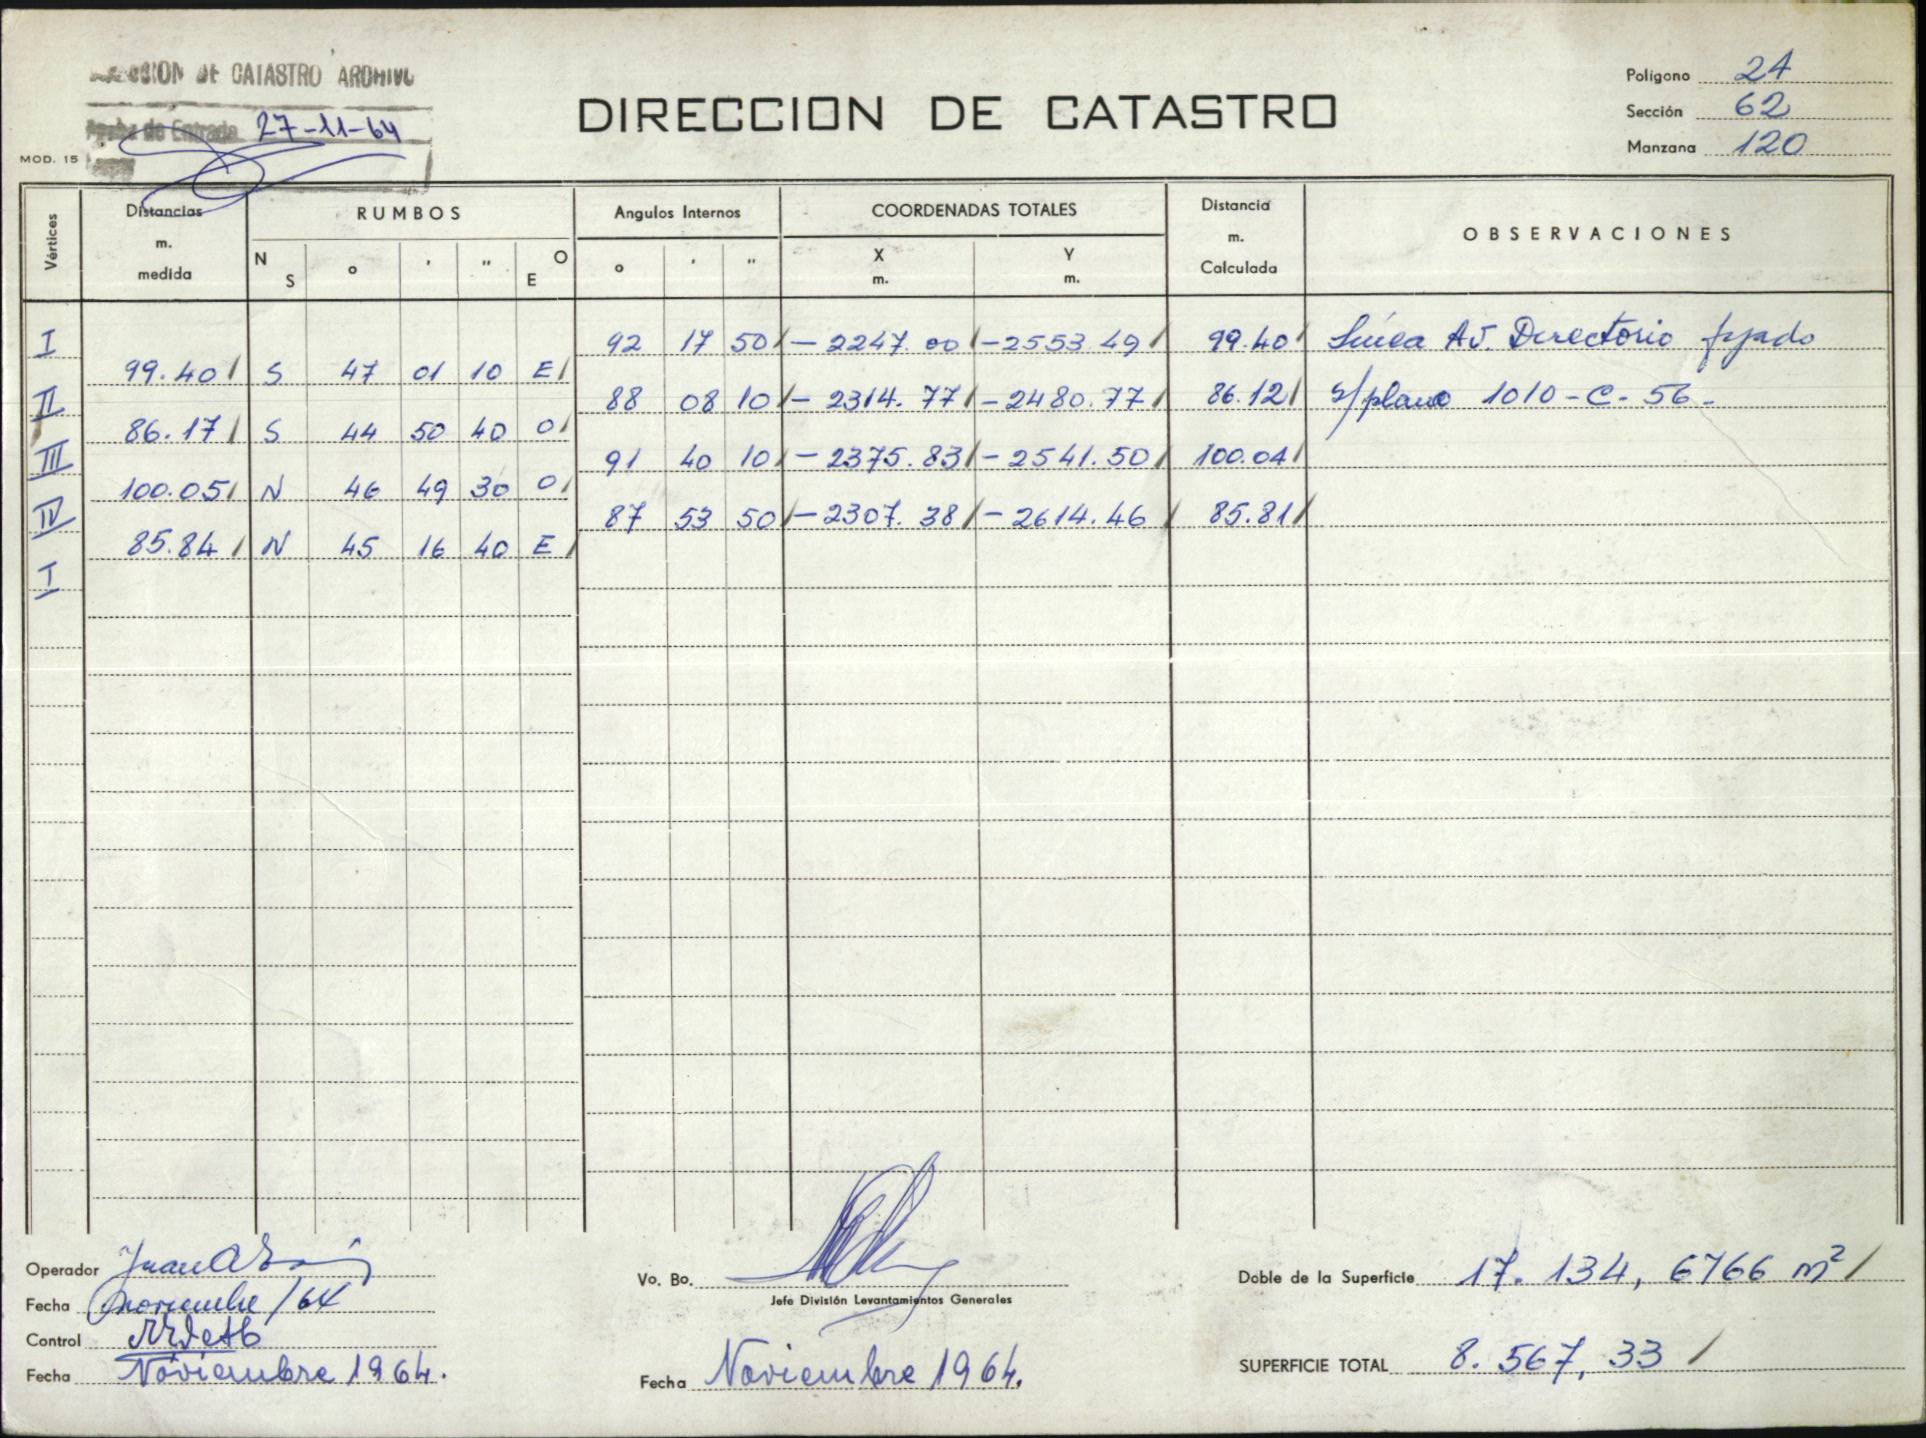 DE CATASTRO ARCHIVO
de Entrada 27-11-64
MOD. 15
DIRECCION DE CATASTRO
Polígono 24
Sección 62
Manzana 120
Vértices
Distancias m. medida
RUMBOS
N S ° ' " O E
Angulos Internos
° ' "
COORDENADAS TOTALES
X m. Y m.
Distancia m. Calculada
OBSERVACIONES
I 92 17 50 -2247.00 -2553.49 99.40 Línea Av. Directorio fijado
99.40 S 47 01 10 E
II 88 08 10 -2314.77 -2480.77 86.12 s/plano 1010-C-56-
86.17 S 44 50 40 O
III 91 40 10 -2375.83 -2541.50 100.04
100.05 N 46 49 30 O
IV 87 53 50 -2307.38 -2614.46 85.81
85.84 N 45 16 40 E
I
Operador Juan
Fecha Noviembre/64
Control
Fecha Noviembre 1964.
Vo. Bo.
Jefe División Levantamientos Generales
Fecha Noviembre 1964.
Doble de la Superficie 17.134,6766 m²
SUPERFICIE TOTAL 8.567,33